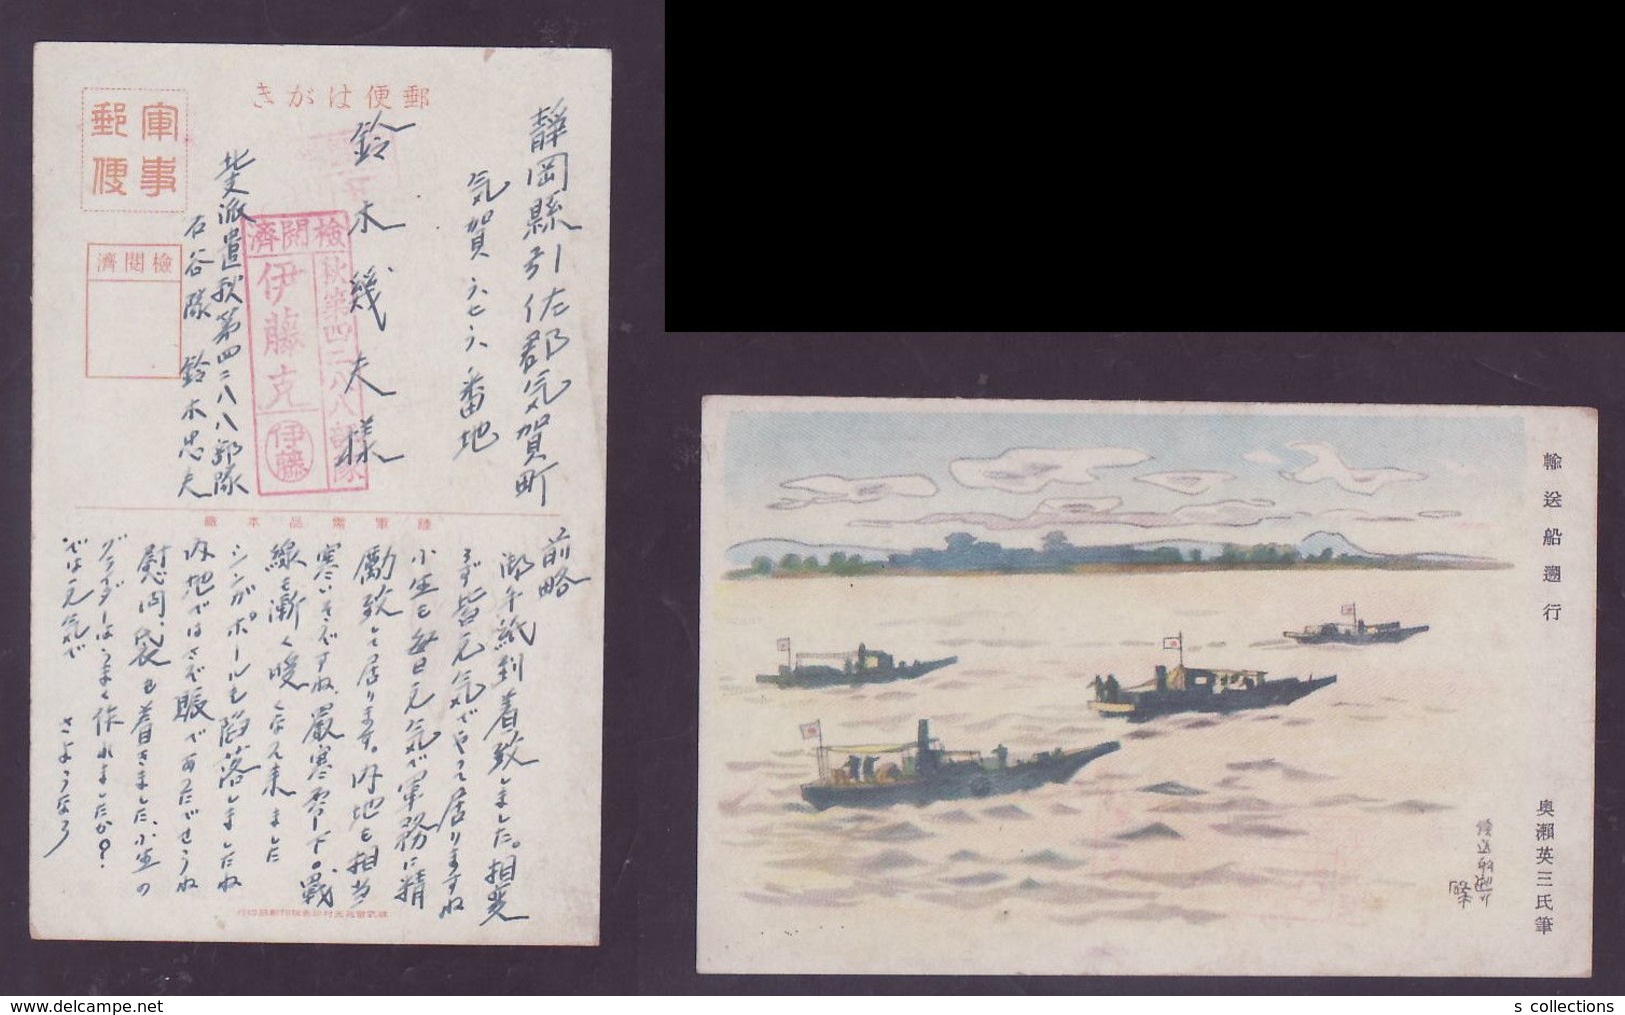 郵便はがき
軍事郵便
檢閲濟
靜岡縣引佐郡気賀町
気賀六七六番地
鈴木幾夫様
檢閲濟
秋第四二八八部隊
伊藤克
伊藤
北支派遣秋第四二八八部隊
石谷隊 鈴木忠夫
陸軍需品本廠
前略
御手紙到着致しました。相変
らず皆元気でやって居りますね
小生も毎日元気で軍務に精
励致して居ります。内地も相当
寒いそうですね、嚴寒零下。戦
線も漸く暖くなって来ました
シンガポールも陥落しましたね
内地ではさぞ賑であったでせうね
慰问袋も着きました、小生の
グライダーはうまく作れましたか?
では元気で さようなら
輸送船遡行
奥瀬英三氏筆
s collections